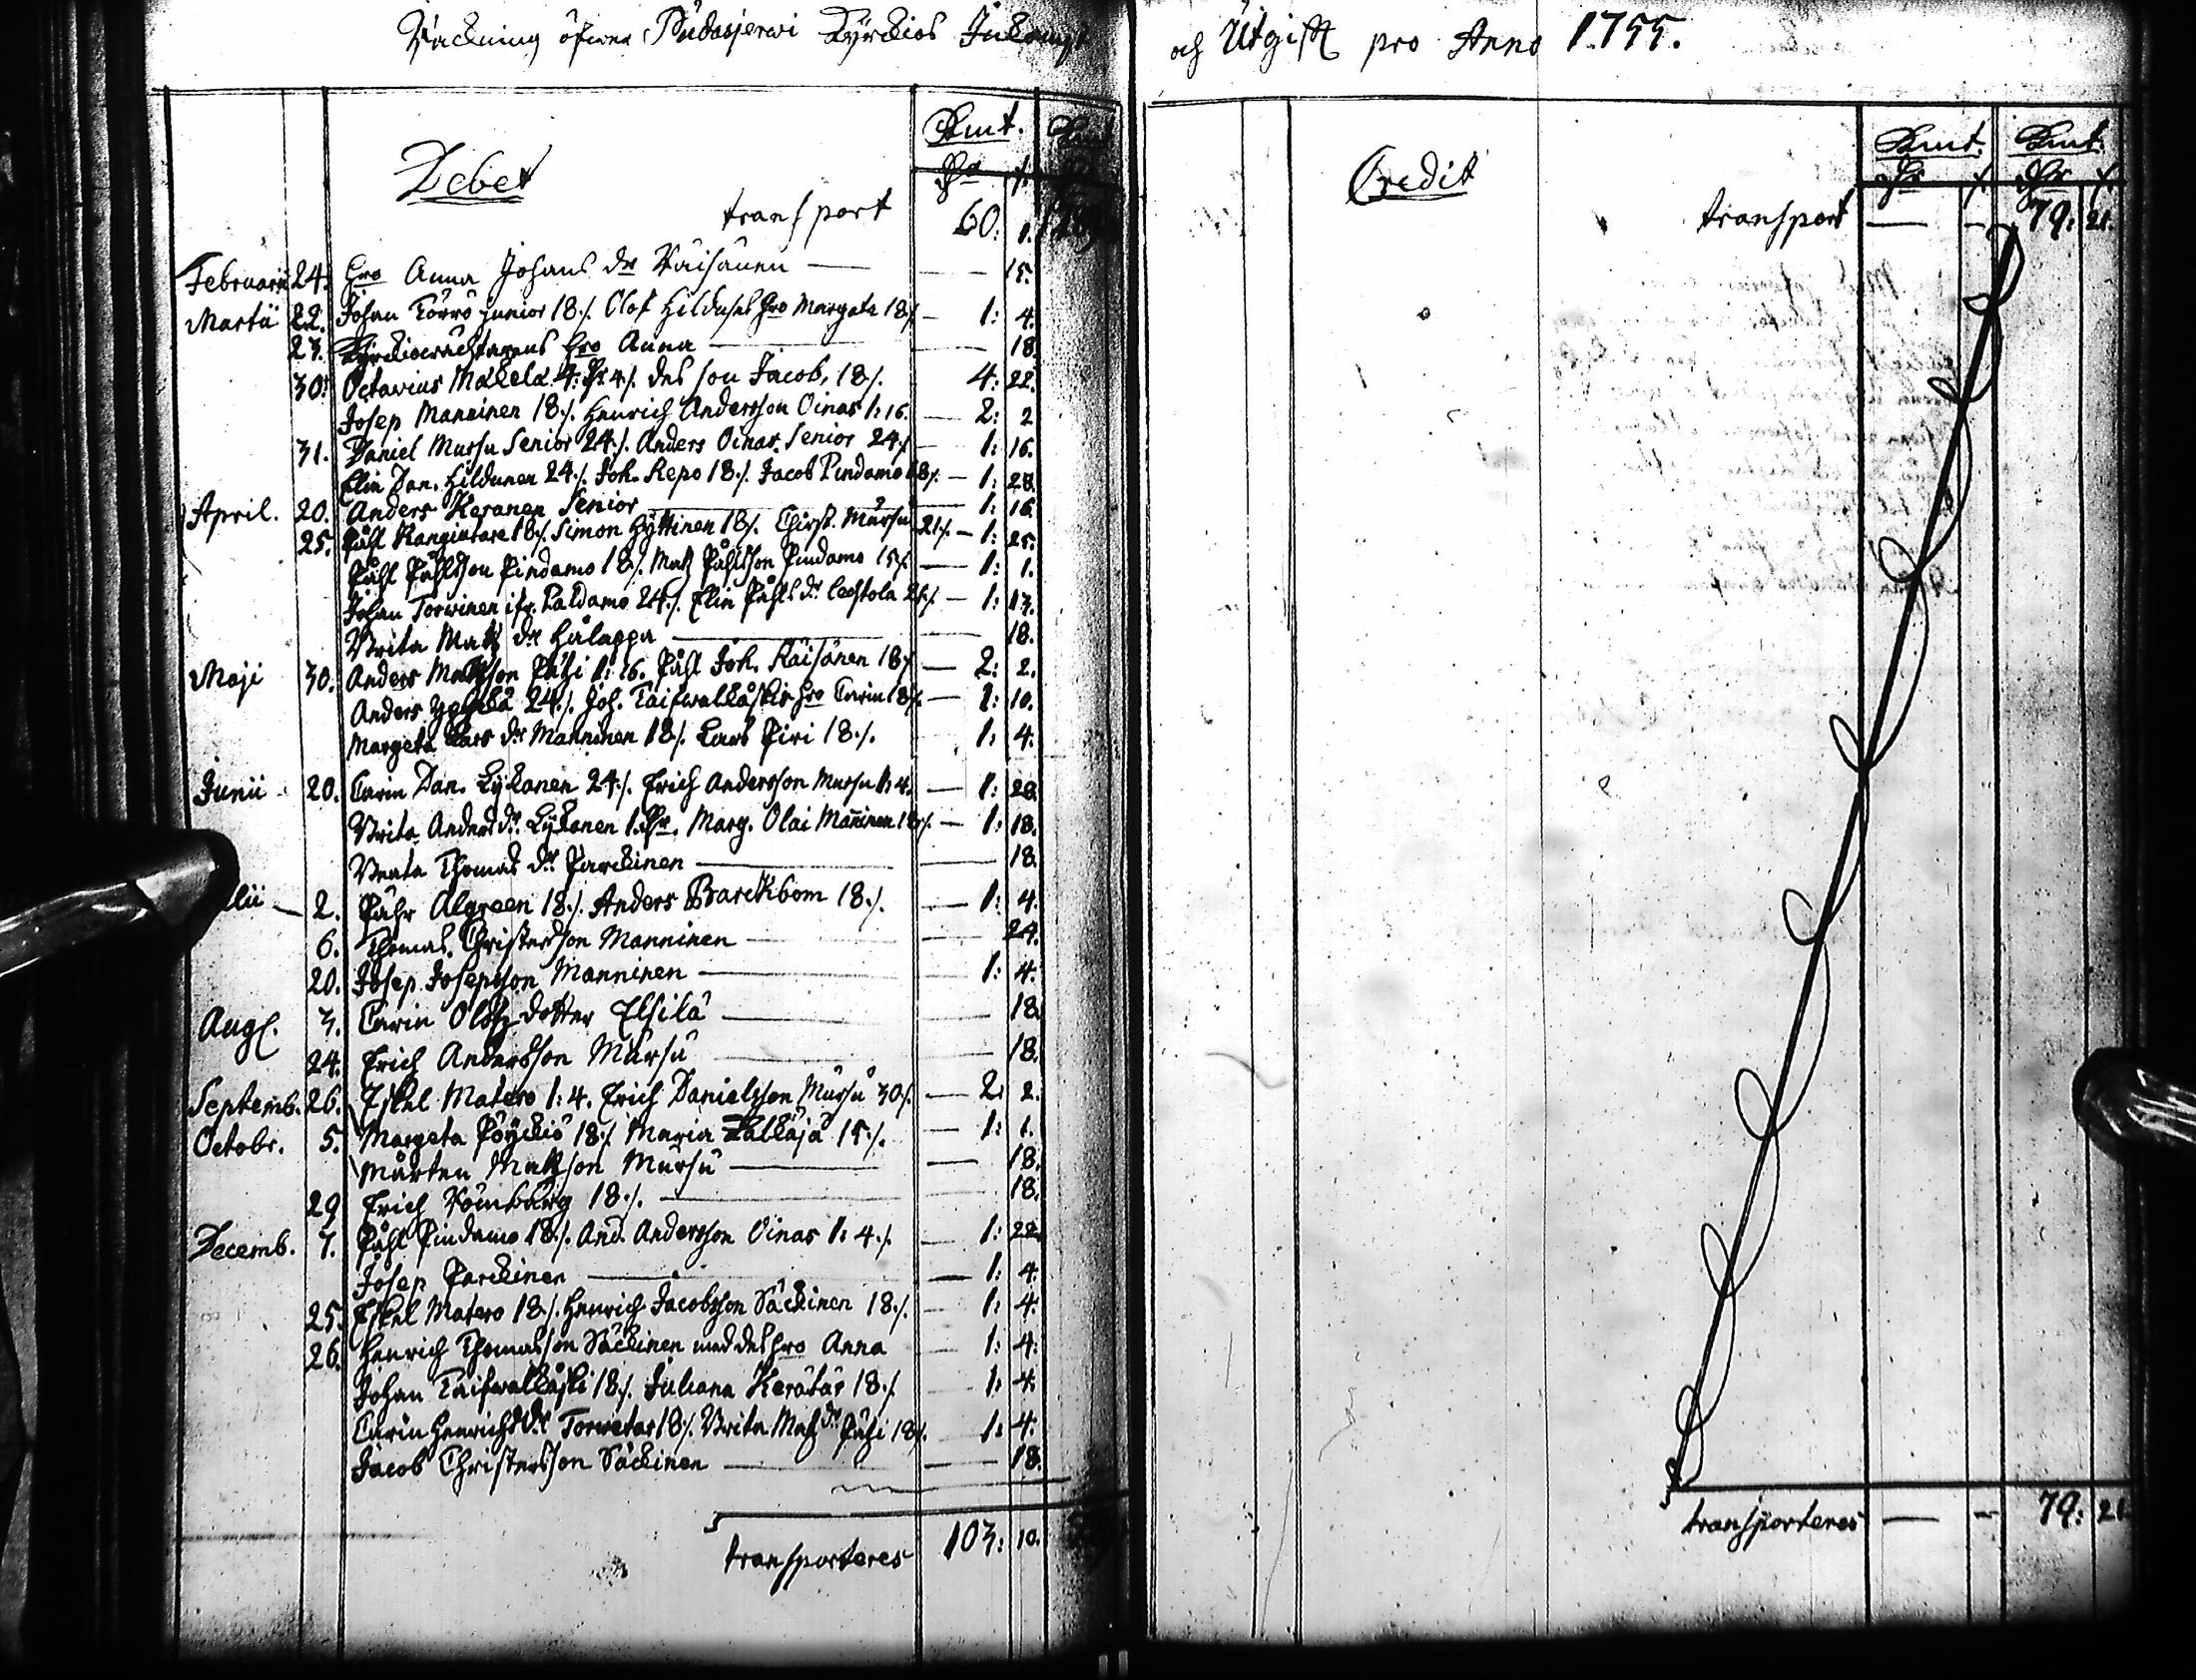 Räckning öfwer Pudasjerwi Kyrckios Inkompst
och Utgifft pro Anno 1755.
Debet
Smt.
Dr /.
transport 60: 1.
Februarii 24. hro Anna Johans dr Räisänen — 15.
Martii 22. Johan Törrö junior 18./. Olof Hilduses hro Margeta 18./. — 1: 4.
23. Kyrckiowächtarens hro Anna — 18.
30. Octavius Makela 4: Dr 4./. des son Jacob, 18./. 4: 22.
Josep Manninen 18./. Henrich Andersson Oinas 1: 16. — 2: 2
31. Daniel Mursu Senior 24./. Anders Oinas Senior 24./. — 1: 16.
Elin Dan. Hildunen 24./. Joh. Repo 18./. Jacob Pindamo 18/. — 1: 28.
April. 20. Anders Keranen Senior — 1: 16.
25. Påhl Rangintare 18./. Simon Hyttinen 18/. Christ. Mursu 21./. — 1: 25.
Påhl Påhlsson Pindamo 18/. Matz Påhlsson Pindamo 15/. — 1: 1.
Johan Torwinen ifr. Paldamo 24./. Elin Påhls dr 21/. — 1: 13.
Brita Matz dr Halappa — 18.
Maji 30. Anders Mattsson Pätzi 1: 16. Påhl Joh. Räisänen 18/. — 2: 2.
Anders 24./. Joh. Taifwalkåski hro Carin 18/. — 1: 10.
Margeta Lars dr Manninen 18/. Lars Piri 18./. 1: 4.
Junii 20. Carin Dan. Lykanen 24./. Erich Andersson Mursu 1: 4. — 1: 28
Brita Anders dr Lykanen 1. Dr. Marg. Olai Manninen 18/. — 1: 18.
Beata Thomas dr Parckinen — 18.
lii 2. Påhr Algreen 18./. Anders Barckbom 18./. — 1: 4.
6. Thomas Christersson Manninen — 24.
20. Josep Josepsson Manninen — 1: 4.
Aug. 3. Carin Olofz dotter Elsilä — 18.
24. Erich Andersson Mursu — 18.
Septemb. 26. Eskel Matero 1: 4. Erich Danielsson Mursu 30/. — 2: 2.
Octobr. 5. Margeta Pöyckiö 18./. Maria Kalkaja 15./. — 1: 1.
Mårten Matzson Mursu — 18.
29 Erich 18./. — 18.
Decemb. 7. Påhl Pindamo 18./. And. Andersson Oinas 1: 4./. — 1: 22
Josep Parckinen — 1: 4.
25. Eskel Matero 18./. Henrich Jacobsson Säckinen 18./. — 1: 4.
26. Henrich Thomasson Säckinen med des hro Anna — 1: 4.
Johan Taifwalkåski 18/. Juliana Kerätär 18./. — 1: 4.
Carin Henrichs dr Torwetar 18/. Brita Matz dr Pätzi 18/. 1: 4.
Jacob Christersson Säckinen — 18.
transporteres 103: 10.
Credit
Smt. Smt.
Dr /. Dr /.
transport — - 79: 21.
transporteres — - 79: 21